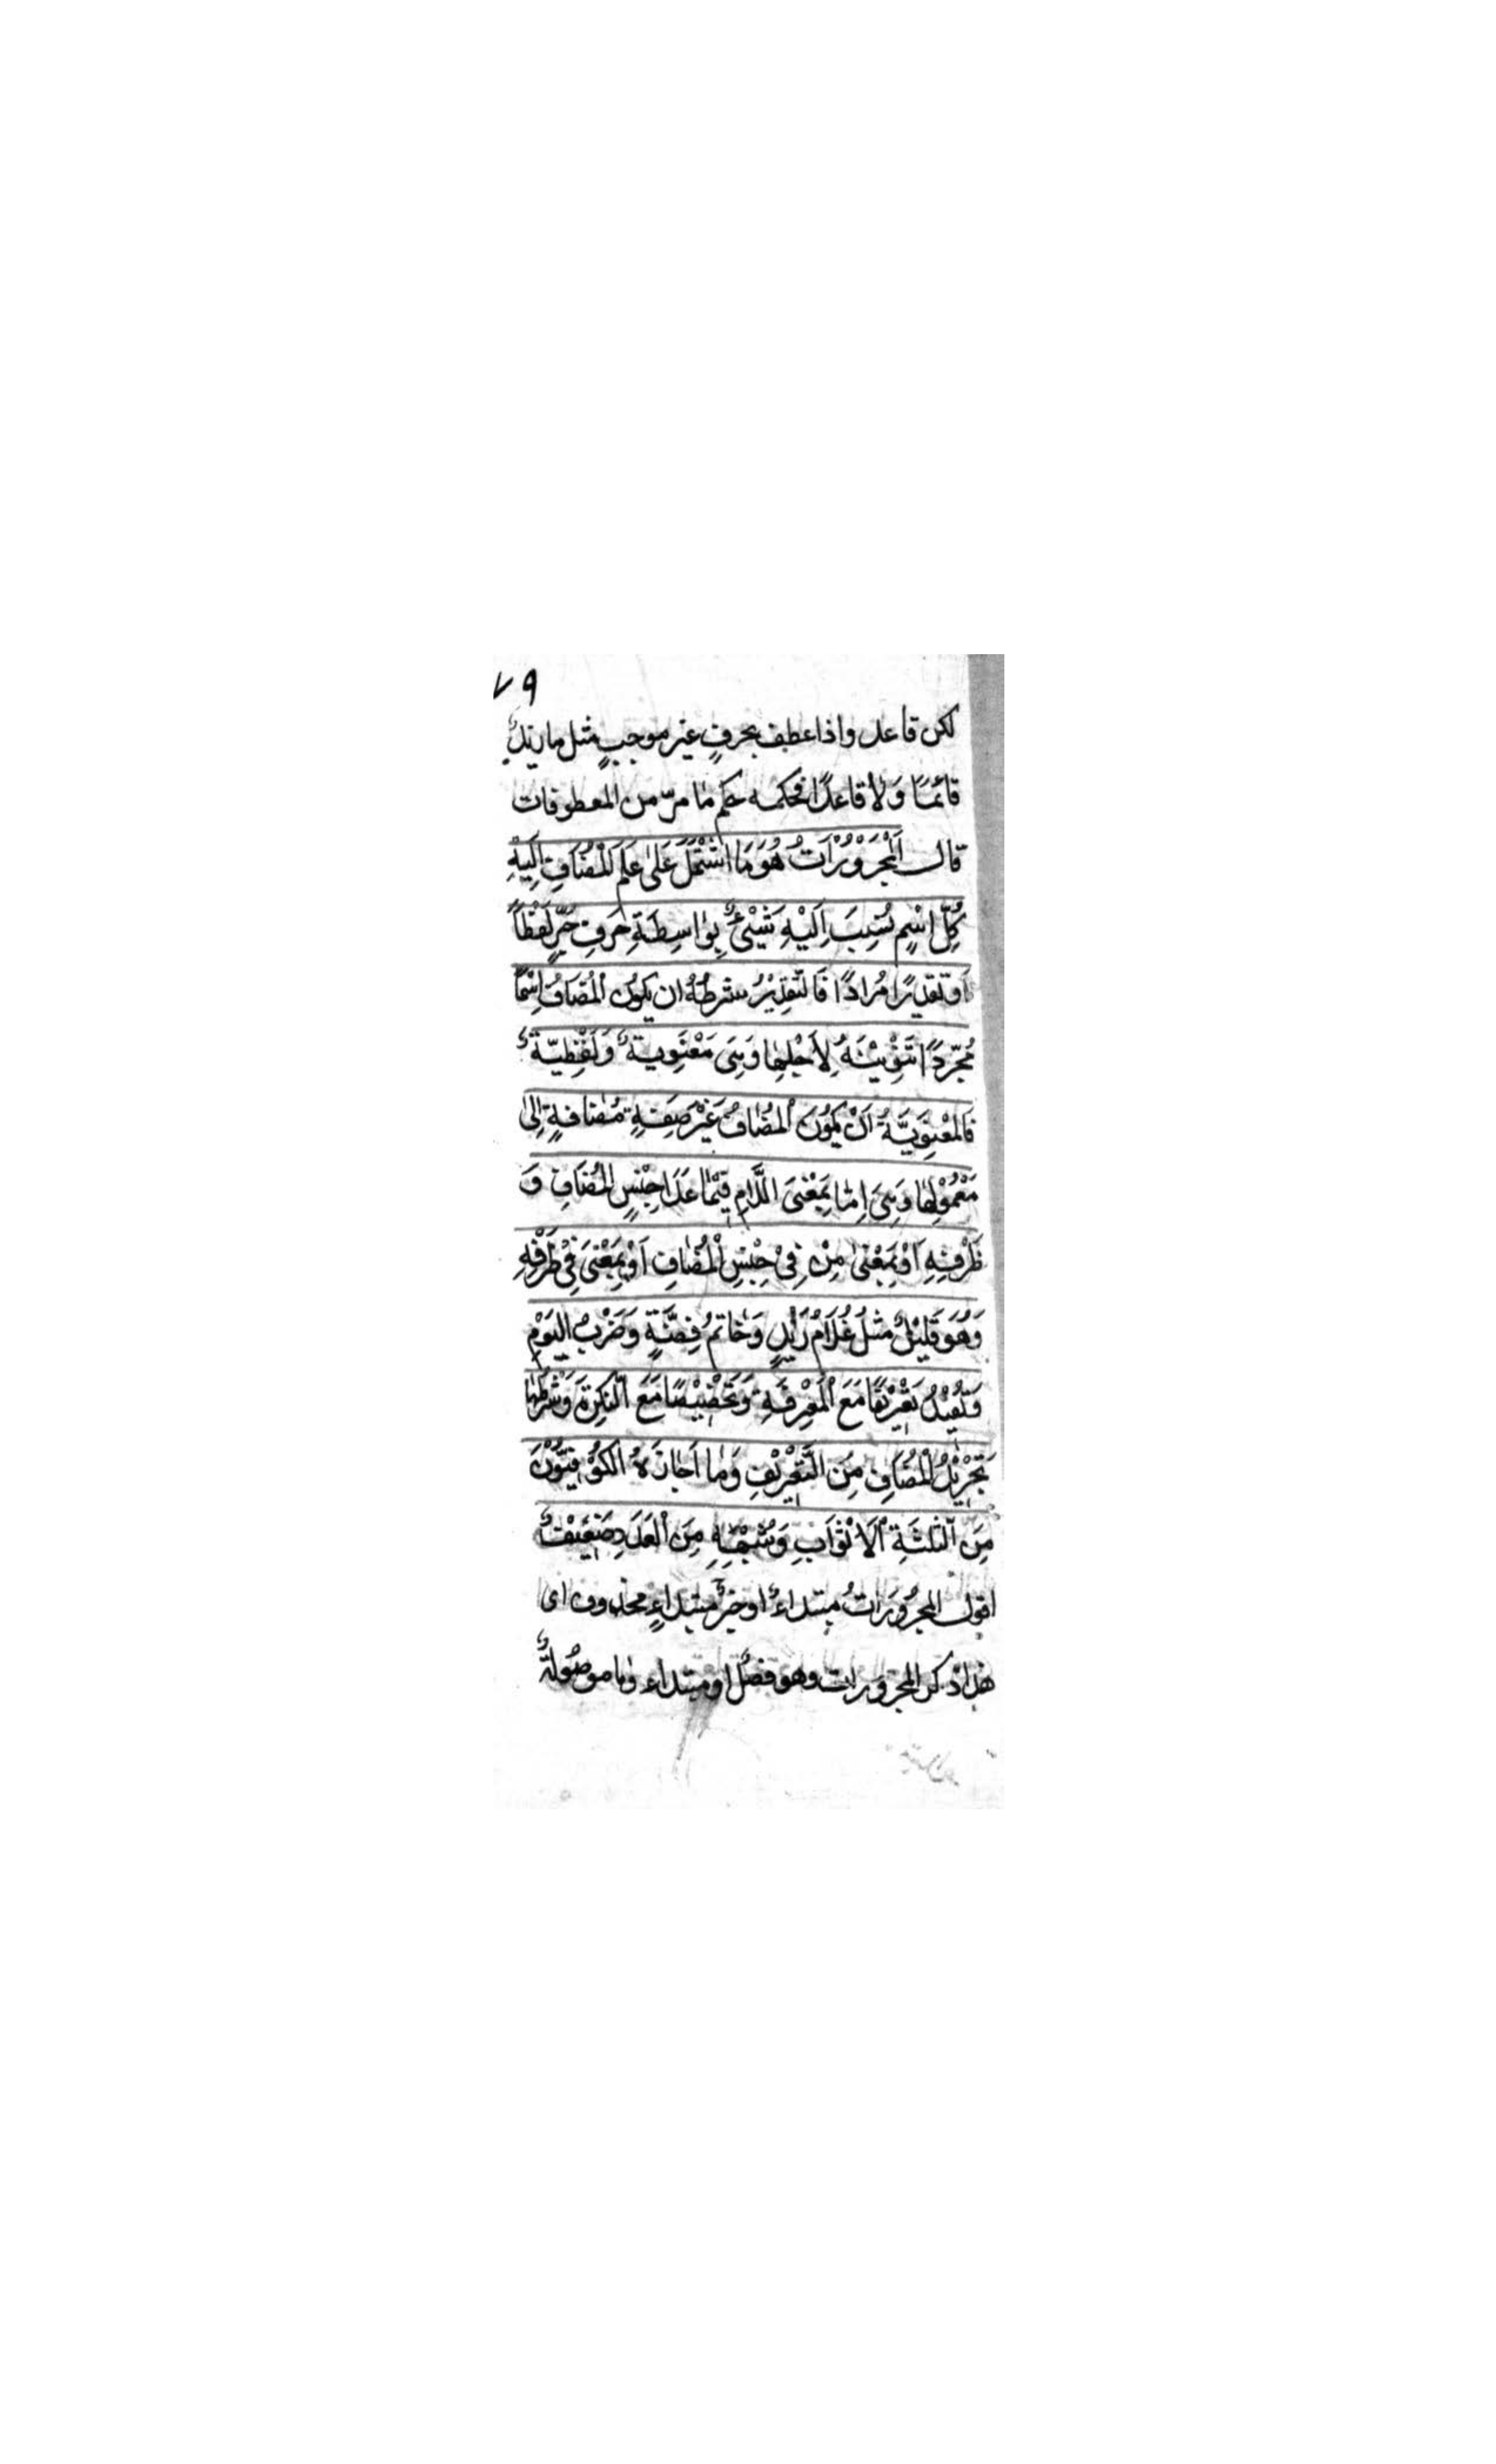 ٧٩
لكن قاعد واذا عطف بحرفٍ غير موجبٍ مثل ما زيدٌ
قائمًا وَلاٰ قاعدًا فحكمه حكم مٰا مرّ من المعطوفات
قال اَلْمَجْرُوْرٰاتُ هُوَ مَا اشْتَمَلَ عَلىٰ عَلَمِ الْمُضٰافِ اِلَيْهِ
كُلُّ اسْمٍ نُسِبَ اِلَيْهِ شَيْئٌ بِوٰاسِطَةِ حَرفِ جَرٍّ لَفْظًا
اَو تَقدِيرًا مُرٰادًا فَالتَّقْدِيْرُ شرطُهُ ان يَكُوْن الْمُضَافُ اِسْمًا
مُجَرّدًا تَنْوِيْنُهُ لِاَجْلِهٰا وَهِىَ مَعْنَوِيةٌ وَلَفْظِيّةٌ
فَالمَعْنَوِيَّةُ اَنْ يَكُوْنَ الْمُضٰافُ غَيْرَ صِفَةٍ مُضٰافةٍ اِلىٰ
مَعْمُوْلِهٰا وَهِىَ اِمّا بِمَعْنىَ اللَّامِ فِيْمٰا عَدَا جِنْسِ الْمُضَافِ وَ
ظَرْفِهِ اَوْ بِمَعْنىٰ مِنْ فِىْ جِنْسِ الْمُضٰافِ اَوْ بِمَعْنىَ فِىْ ظَرْفِهِ
وَهُوَ قَلِيْلٌ مثلُ غُلَامُ زَيْدٍ وَخٰاتَمُ فِضَّةٍ وَضَرْبُ اليَوْمِ
وَتُفِيْدُ تَعْرِيْفًا مَعَ الْمَعْرِفَةِ وَتَخْصِيْصًا مَعَ النَّكِرَةِ وَشَرْطُهٰا
تَجْرِيْدُ الْمُضَافِ مِنَ التَّعْرِيْفِ وَمٰا اَجٰازَهُ الكُوْفِيُّوْنَ
مِنَ الثَّلٰثَةِ اْلاَثْوَابِ وَشِبْهِهِ مِنَ الْعَدَدِ ضَعِيْفٌ
اقول المجرُوْرَاتُ مبتداءٌ او خبرُ مبتداءٍ محذوف اى
هٰذا ذكر المجرورات وهو فصلٌ او مبتداء وٰما موصُولةٌ